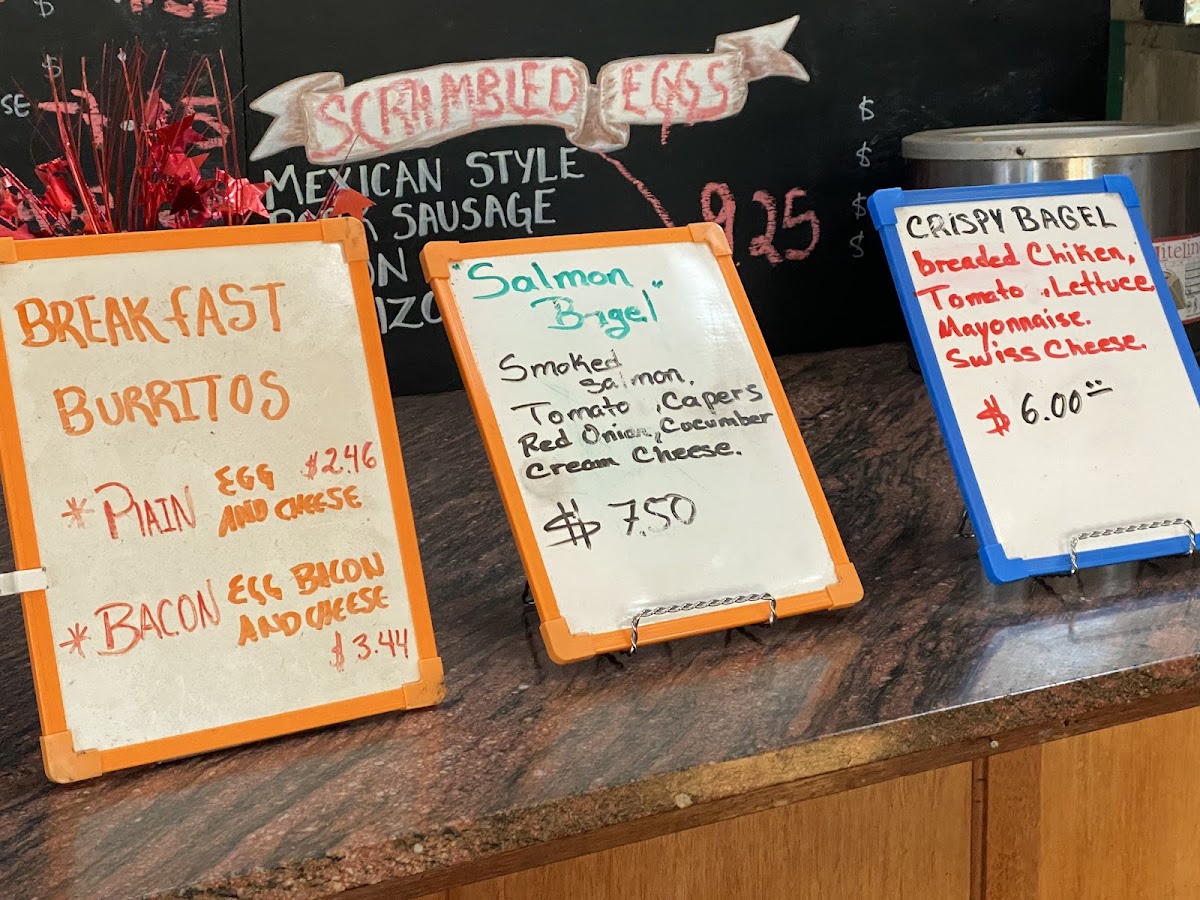 SCRAMBLED EGGS
MEXICAN STYLE
SAUSAGE
9.25
$
$
$
$
BREAKFAST
BURRITOS
* PLAIN EGG $2.46
AND CHEESE
* BACON EGG BACON
AND CHEESE
$3.44
"Salmon
Bagel"
Smoked
Salmon.
Tomato, Capers
Red Onion, Cucumber
Cream Cheese.
$ 7.50
CRISPY BAGEL
breaded Chiken,
Tomato, Lettuce
Mayonnaise.
Swiss Cheese.
$ 6.00